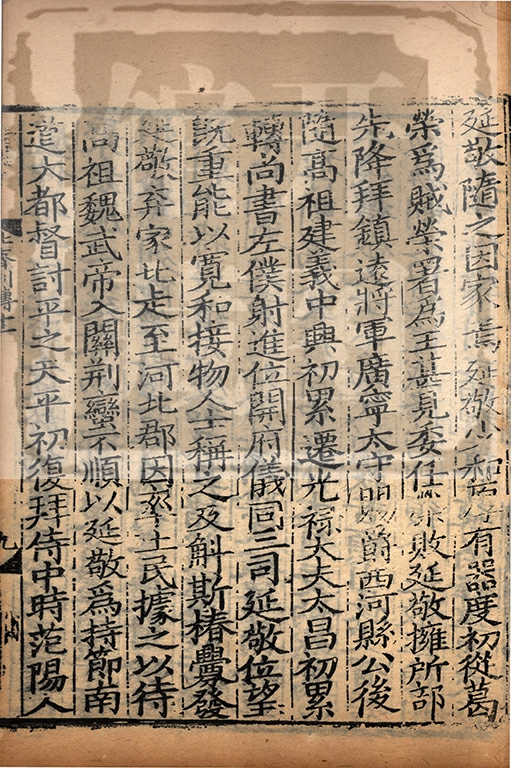 延敬隨之因家焉延敬少和厚有器度初從葛
榮爲賊榮署爲王甚見委任榮敗延敬擁所部
先降拜鎮遠將軍廣寧太守賜爵西河縣公後
隨高祖建義中興初累遷光祿大夫太昌初累
轉尚書左僕射進位開府儀同三司延敬位望
既重能以寬和接物人士稱之及斛斯椿釁發
延敬弃家北走至河北郡因率土民據之以待
高祖魏武帝入關荆蠻不順以延敬爲持節南
道大都督討平之天平初復拜侍中時范陽人
九